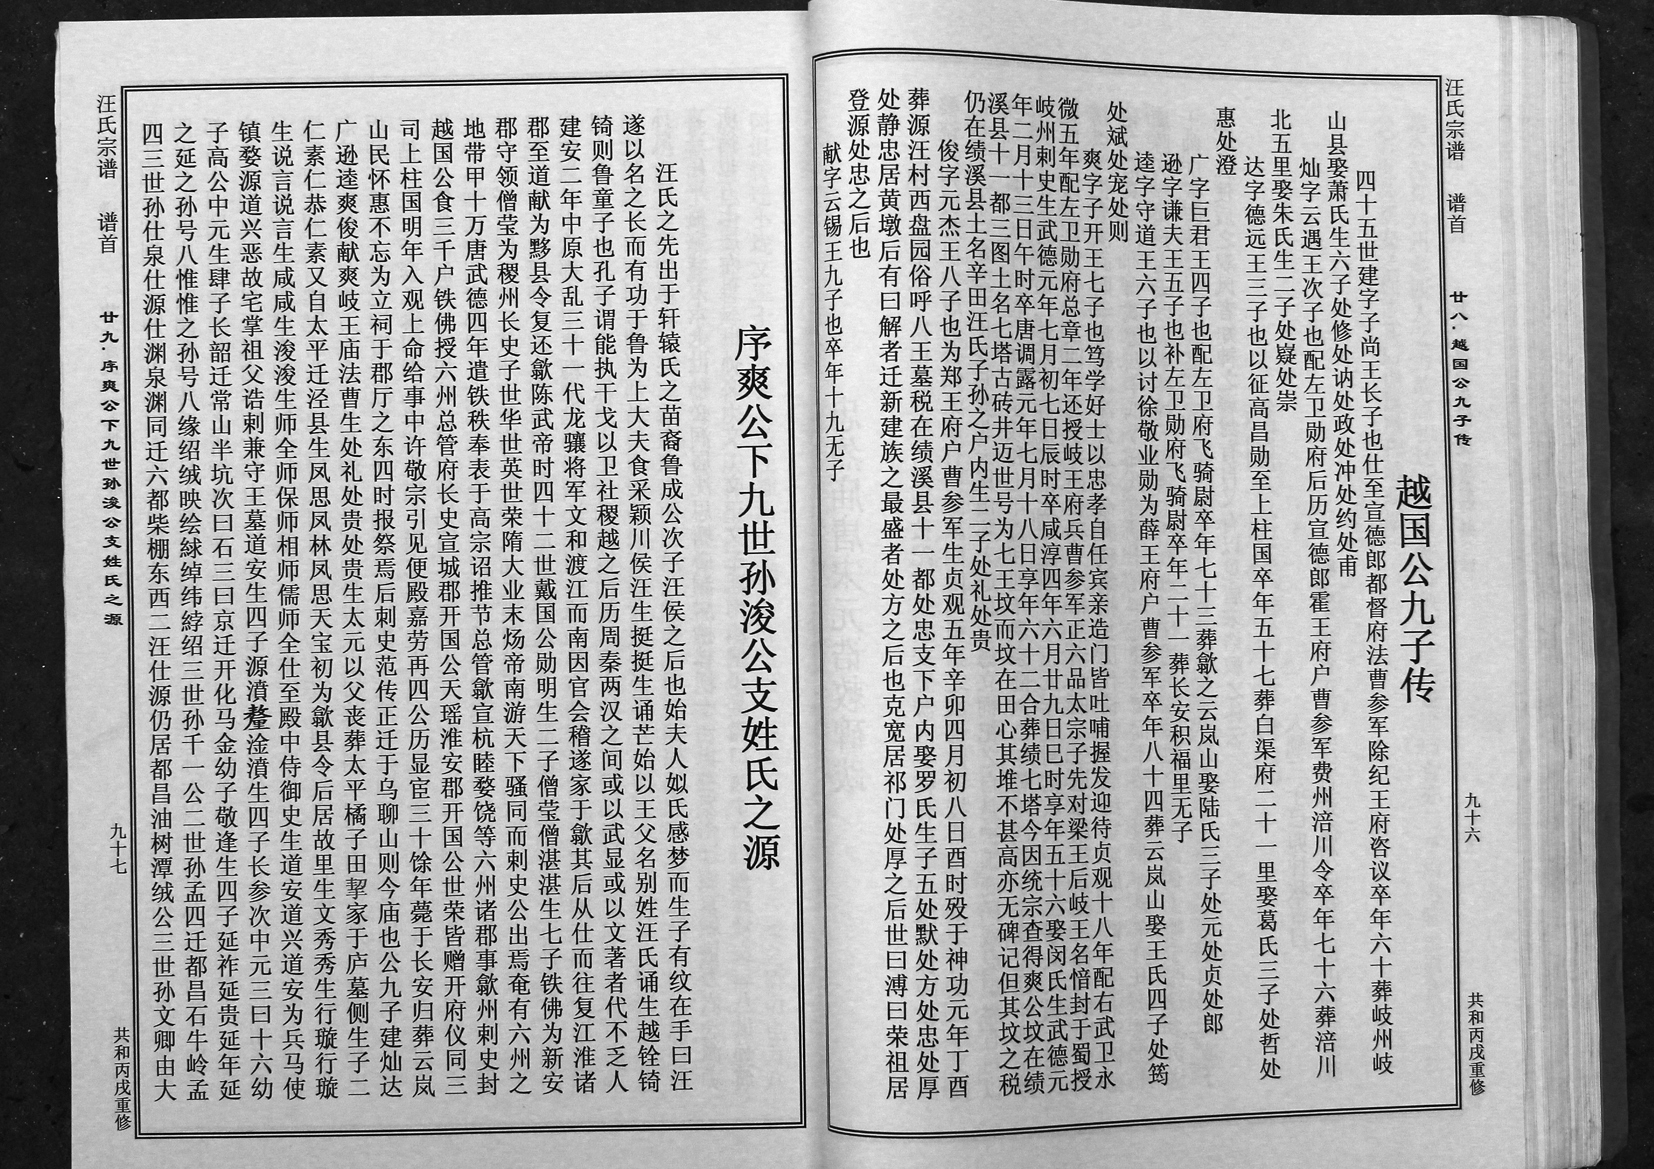 汪氏宗谱 谱首 廿八·越国公九子传 九十六 共和丙戌重修
越国公九子传
四十五世建字子尚王长子也仕至宣德郎都督府法曹参军除纪王府咨议卒年六十葬岐州岐
山县娶萧氏生六子处修处讷处政处冲处约处甫
灿字云遇王次子也配左卫勋府后历宣德郎霍王府户曹参军费州涪川令卒年七十六葬涪川
北五里娶朱氏生二子处嶷处崇
达字德远王三子也以征高昌勋至上柱国卒年五十七葬白渠府二十一里娶葛氏三子处哲处
惠处澄
广字巨君王四子也配左卫府飞骑尉卒年七十三葬歙之云岚山娶陆氏三子处元处贞处郎
逊字谦夫王五子也补左卫勋府飞骑尉卒年二十一葬长安积福里无子
逵字守道王六子也以讨徐敬业勋为薛王府户曹参军卒年八十四葬云岚山娶王氏四子处筠
处斌处宠处则
爽字子开王七子也笃学好士以忠孝自任宾亲造门皆吐哺握发迎待贞观十八年配右武卫永
微五年配左卫勋府总章二年还授岐王府兵曹参军正六品太宗子先对梁王后岐王名愔封于蜀授
岐州刺史生武德元年七月初七日辰时卒咸淳四年六月廿九日巳时享年五十六娶闵氏生武德元
年二月十三日午时卒唐调露元年七月十八日享年六十二合葬绩七塔今因统宗查得爽公坟在绩
溪县十一都三图土名七塔古砖井迈世号为七王坟而坟在田心其堆不甚高亦无碑记但其坟之税
仍在绩溪县土名辛田汪氏子孙之户内生二子处礼处贵
俊字元杰王八子也为郑王府户曹参军生贞观五年辛卯四月初八日酉时殁于神功元年丁酉
葬源汪村西盘园俗呼八王墓税在绩溪县十一都处忠支下户内娶罗氏生子五处默处方处忠处厚
处静忠居黄墩后有曰解者迁新建族之最盛者处方之后也克宽居祁门处厚之后世曰溥曰荣祖居
登源处忠之后也
献字云锡王九子也卒年十九无子
序爽公下九世孙浚公支姓氏之源
汪氏之先出于轩辕氏之苗裔鲁成公次子汪侯之后也始夫人姒氏感梦而生子有纹在手曰汪
遂以名之长而有功于鲁为上大夫食采颖川侯汪生挺挺生诵芒始以王父名别姓汪氏诵生越铨锜
锜则鲁童子也孔子谓能执干戈以卫社稷越之后历周秦两汉之间或以武显或以文著者代不乏人
建安二年中原大乱三十一代龙骧将军文和渡江而南因官会稽遂家于歙其后从仕而往复江淮诸
郡至道献为黟县令复还歙陈武帝时四十二世戴国公勋明生二子僧莹僧湛湛生七子铁佛为新安
郡守领僧莹为稷州长史子世华世英世荣隋大业末炀帝南游天下骚同而刺史公出焉奄有六州之
地带甲十万唐武德四年遣铁秩奉表于高宗诏推节总管歙宣杭睦婺饶等六州诸郡事歙州刺史封
越国公食三千户铁佛授六州总管府长史宣城郡开国公天瑶淮安郡开国公世荣皆赠开府仪同三
司上柱国明年入观上命给事中许敬宗引见便殿嘉劳再四公历显宦三十馀年薨于长安归葬云岚
山民怀惠不忘为立祠于郡厅之东四时报祭焉后刺史范传正迁于乌聊山则今庙也公九子建灿达
广逊逵爽俊献爽岐王庙法曹生处礼处贵处贵生太元以父丧葬太平橘子田挈家于庐墓侧生子二
仁素仁恭仁素又自太平迁泾县生凤思凤林凤思天宝初为歙县令后居故里生文秀秀生行璇行璇
生说言说言生咸咸生浚浚生师全师保师相师儒师全仕至殿中侍御史生道安道兴道安为兵马使
镇婺源道兴恶故宅掌祖父诰剌兼守王墓道安生四子源濆漦淦濆生四子长参次中元三曰十六幼
子高公中元生肆子长韶迁常山半坑次曰石三曰京迁开化马金幼子敬逢生四子延祚延贵延年延
之延之孙号八惟惟之孙号八缘绍绒映绘緑绰纬綍绍三世孙千一公二世孙孟四迁都昌石牛岭孟
四三世孙仕泉仕源仕渊泉渊同迁六都柴棚东西二汪仕源仍居都昌油树潭绒公三世孙文卿由大
汪氏宗谱 谱首 廿九·序爽公下九世孙浚公支姓氏之源 九十七 共和丙戌重修